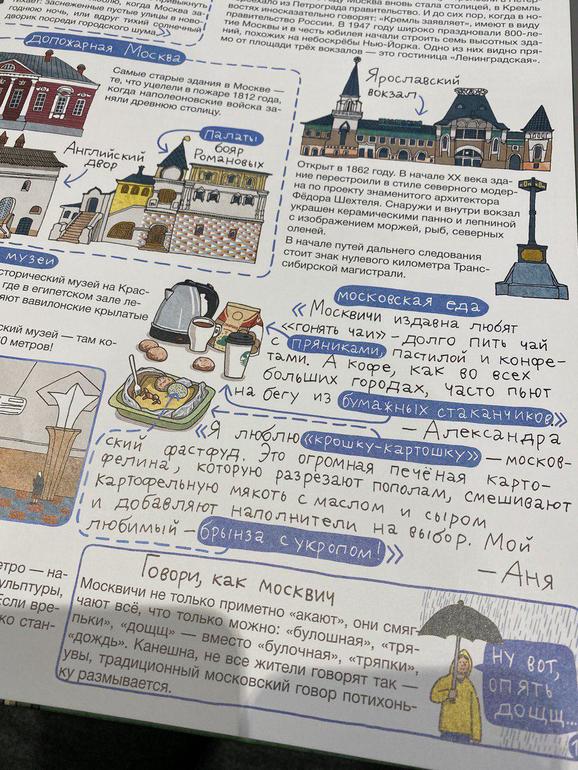 привыкнуть
тихает: заснеженные пустые улицы в ново-
годнюю ночь, или вдруг тихий солнечный
дворик посреди городского шума.»
допожарная Москва
Самые старые здания в Москве —
те, что уцелели в пожаре 1812 года,
когда наполеоновские войска за-
няли древнюю столицу.
Английский
двор
палаты
бояр
Романовых
музеи
исторический музей на Крас-
где в египетском зале ле-
вавилонские крылатые
ский музей — там ко-
0 метров!
Москва вновь стала столицей, и
переехало из Петрограда правительство. И до сих пор, когда в но-
востях иносказательно говорят: «Кремль заявляет», имеют в виду
правительство России. В 1947 году широко праздновали 800-ле-
тие Москвы и в честь юбилея начали строить семь высотных зда-
ний, похожих на небоскрёбы Нью-Йорка. Одно из них видно пря-
мо от площади трёх вокзалов — это гостиница «Ленинградская».
Ярославский
вокзал
Открыт в 1862 году. В начале XX века зда-
ние перестроили в стиле северного модер-
на по проекту знаменитого архитектора
Фёдора Шехтеля. Снаружи и внутри вокзал
украшен керамическими панно и лепниной
с изображением моржей, рыб, северных
оленей.
В начале путей дальнего следования
стоит знак нулевого километра Транс-
сибирской магистрали.
московская еда
«Москвичи издавна любят
«гонять чаи» – долго пить чай
с пряниками, пастилой и конфе-
тами. А кофе, как во всех
больших городах, часто пьют
на бегу из бумажных стаканчиков»
– Александра
«Я люблю «крошку-картошку» – москов-
ский фастфуд. Это огромная печёная карто-
фелина, которую разрезают пополам, смешивают
картофельную мякоть с маслом и сыром
и добавляют наполнители на выбор. Мой
любимый – брынза с укропом!»
– Аня
етро — на-
ульптуры,
Если вре-
ко стан-
Говори, как москвич
Москвичи не только приметно «акают», они смяг-
чают всё, что только можно: «булошная», «тря-
пьки», «дощщ» — вместо «булочная», «тряпки»,
«дождь». Канешна, не все жители говорят так —
увы, традиционный московский говор потихонь-
ку размывается.
НУ ВОТ,
ОПЯТЬ
ДОЩЩ...